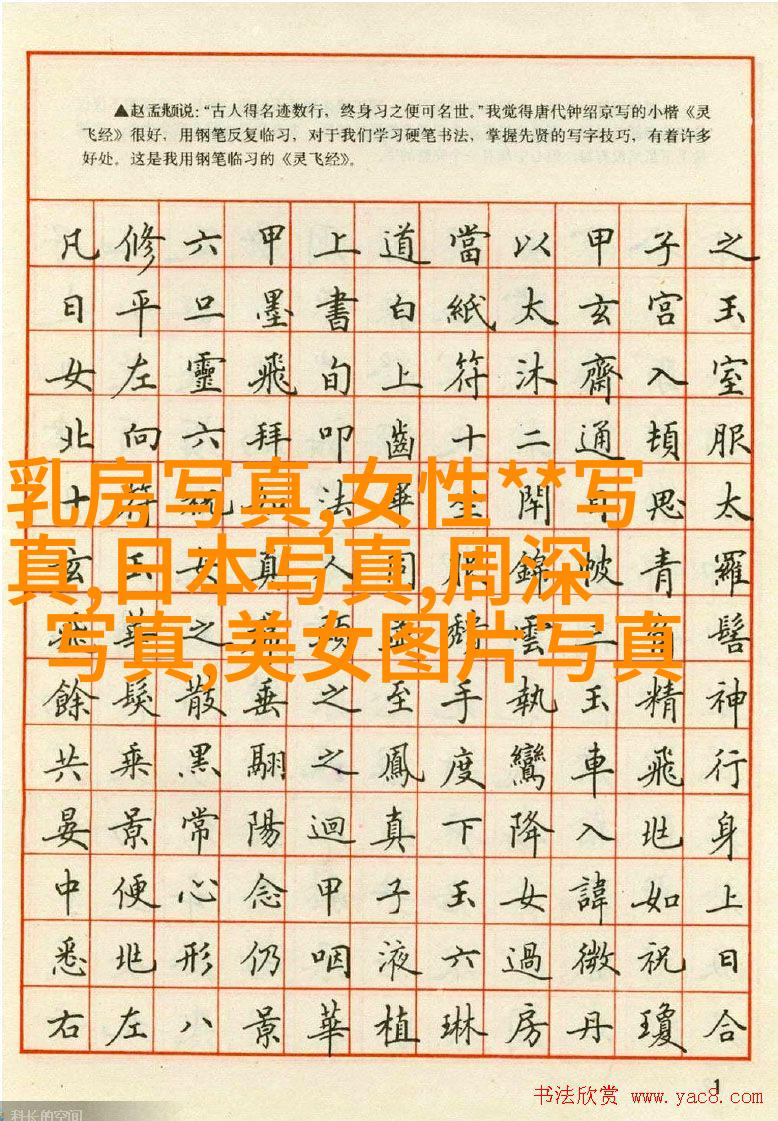 ▲赵孟頫说：“古人得名迹数行，终身习之便可名世。”我觉得唐代钟绍京写的小楷《灵
飞经》很好，用钢笔反复临习，对于我们学习硬笔书法，掌握先贤的写字技巧，有着许多
好处。这是我用钢笔临习的《灵飞经》。
凡修六甲上道當以甲子之
日平旦墨書白紙太玄宮玉
女左靈飛旬上符沐齋入室
北向六拜叩齒十二通頓服
十符祝如法畢閉目思太
玄玉女真人同服錦帔青羅
飛華之頭並頹雲三角髻
餘髮散垂之至手執玉精神
共乘黑翮之鳳度鸞車飛行
晏景常陽迴真下降入北身
中便心念甲子玉女諱如上
悉北形仍咽液六過微祝日
右左八景華植琳房丹瓊合
乳房写真,女性**写
真,日本写真,周深
写真,美女图片写真
1
书法欣赏 www.yac8.com
科长的空间